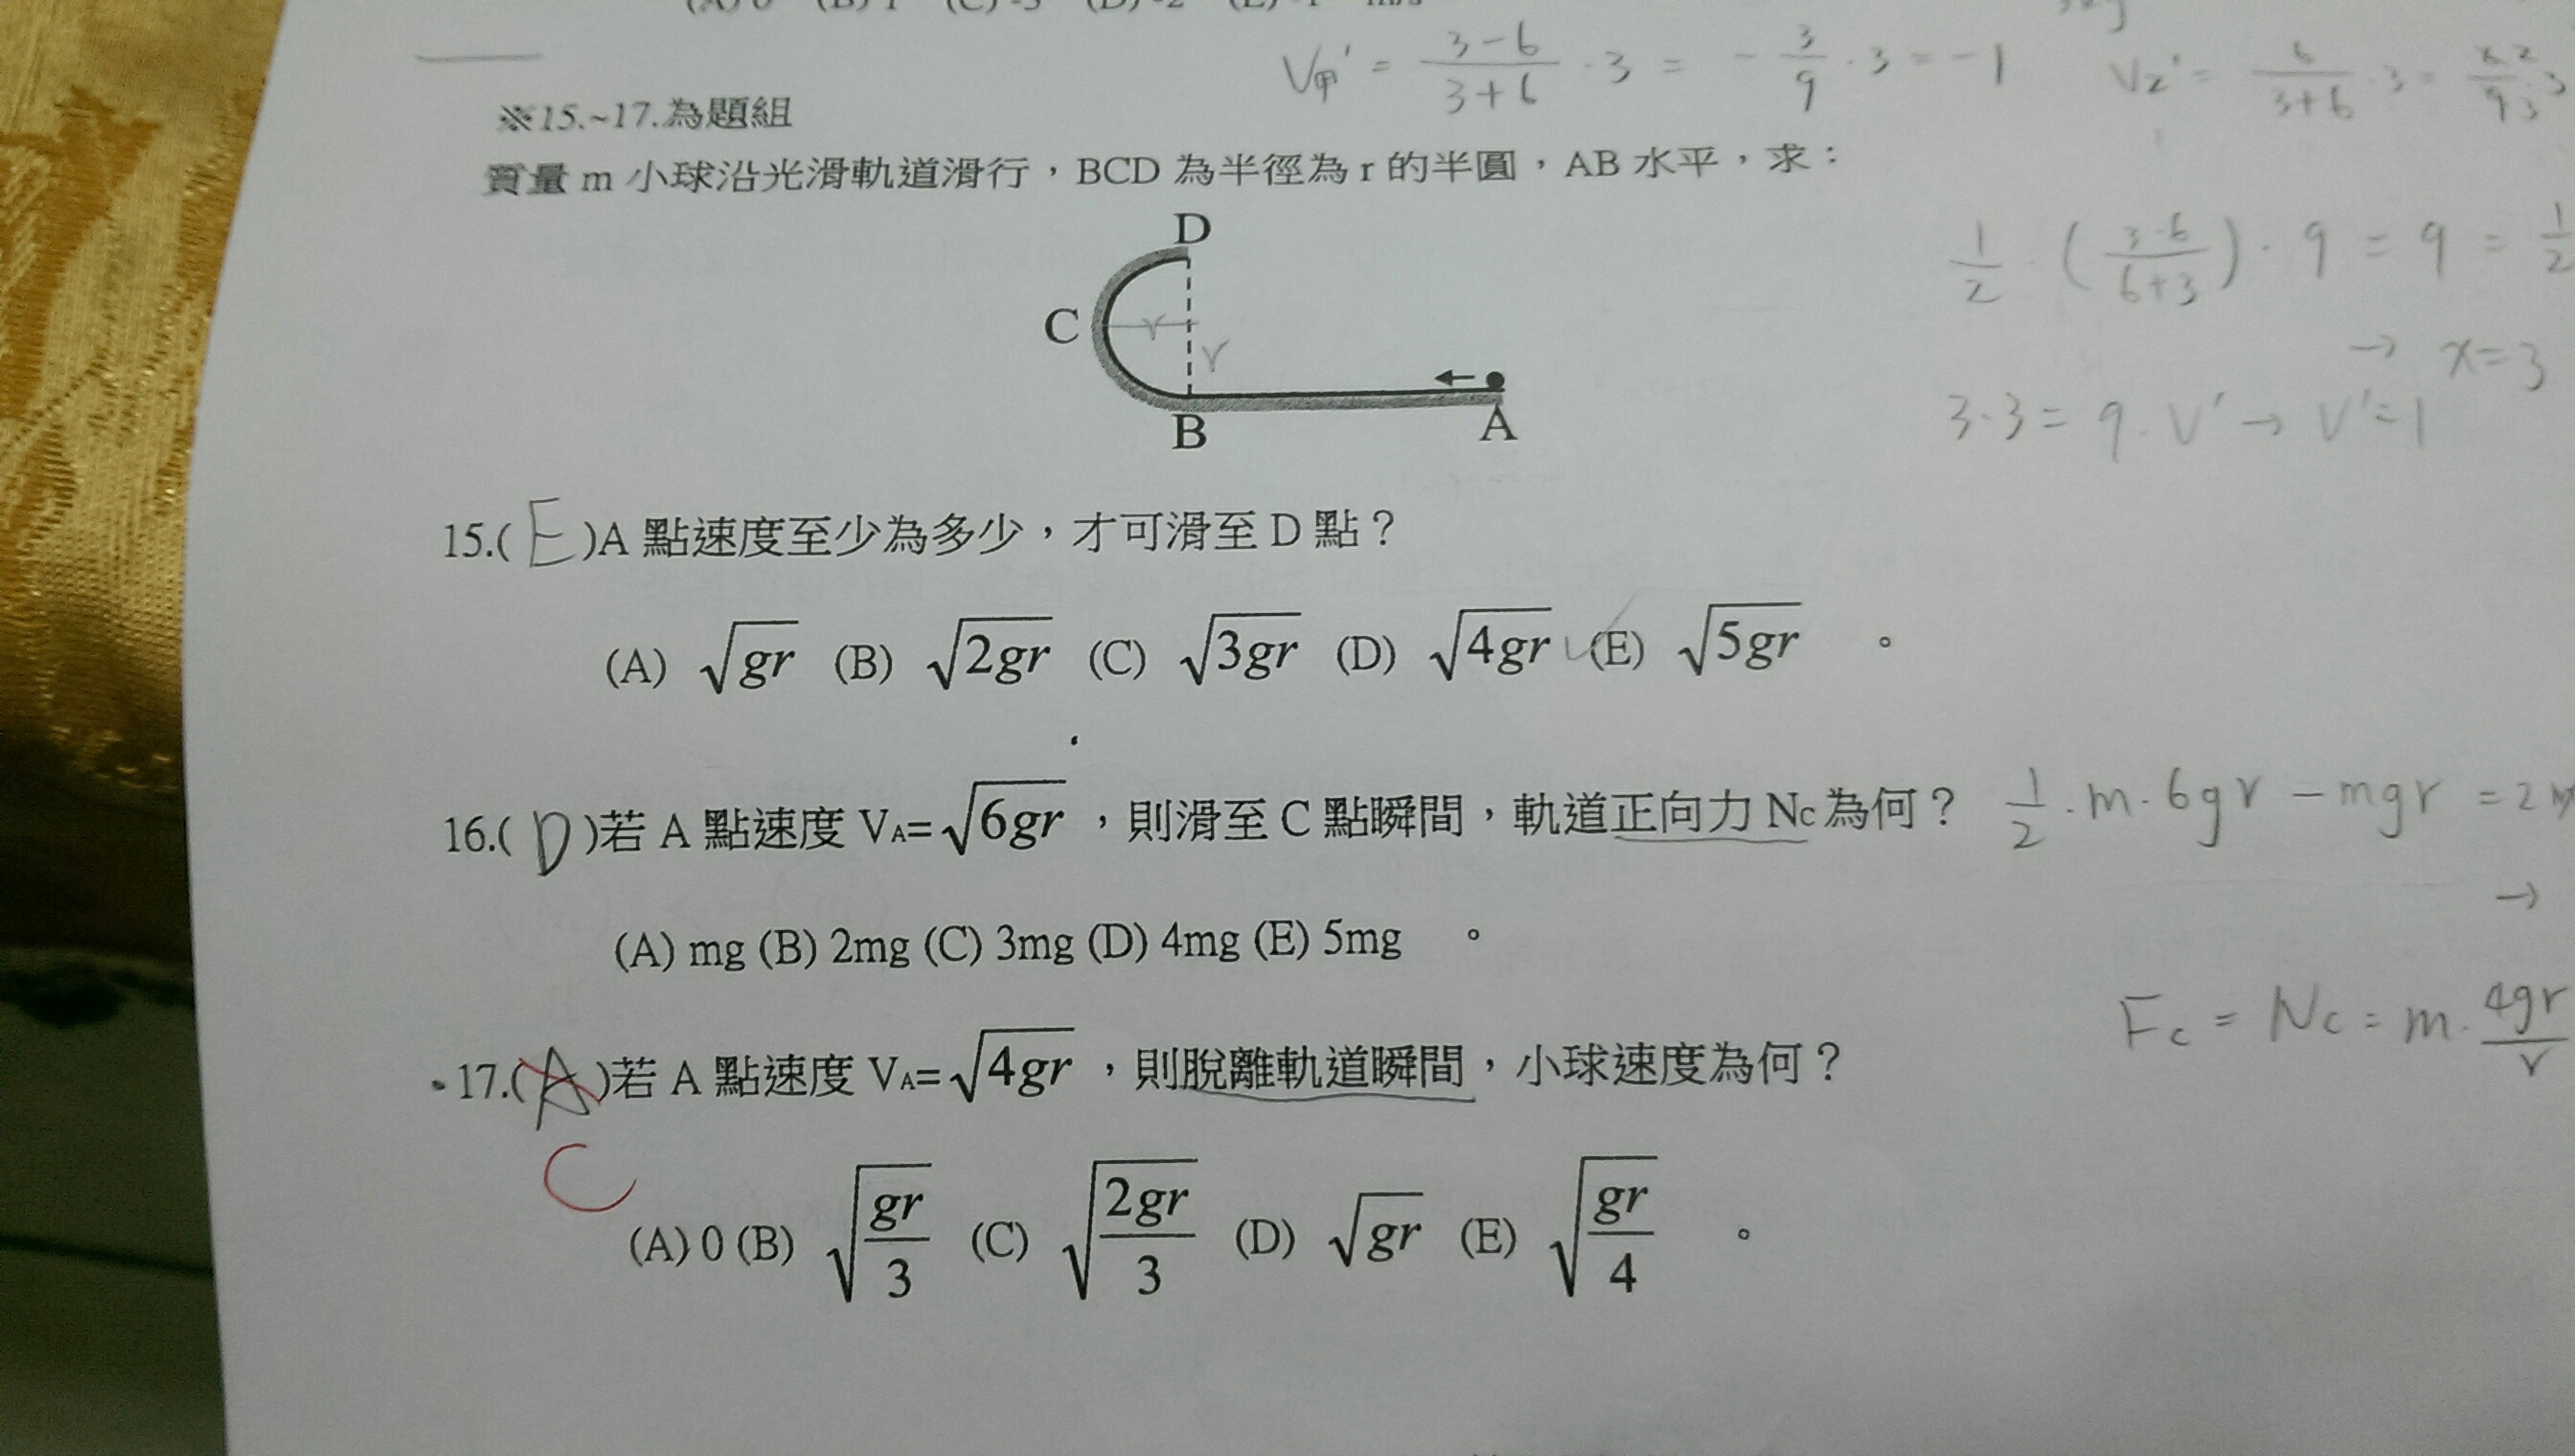 (A) 0 (B) 1 (C) -3 (D) -2 (E) -1 m/s
V甲' = \frac{3-6}{3+6} · 3 = -\frac{3}{9} · 3 = -1
※15.~17.為題組
質量 m 小球沿光滑軌道滑行，BCD 為半徑為 r 的半圓，AB 水平，求：
D
C r
r
B A
\frac{1}{2} · (\frac{3·6}{6+3}) · 9 = 9 = \frac{1}{2}
→ x=3
3·3 = 9·V' → V'=1
15.( E )A 點速度至少為多少，才可滑至 D 點？
(A) √gr (B) √2gr (C) √3gr (D) √4gr (E) √5gr 。
16.( D )若 A 點速度 VA=√6gr ，則滑至 C 點瞬間，軌道正向力 Nc 為何？ \frac{1}{2} · m · 6gr - mgr = 2m
→
(A) mg (B) 2mg (C) 3mg (D) 4mg (E) 5mg 。
Fc = Nc = m · \frac{4gr}{r}
17.( A )若 A 點速度 VA=√4gr ，則脫離軌道瞬間，小球速度為何？
C
(A) 0 (B) √\frac{gr}{3} (C) √\frac{2gr}{3} (D) √gr (E) √\frac{gr}{4} 。